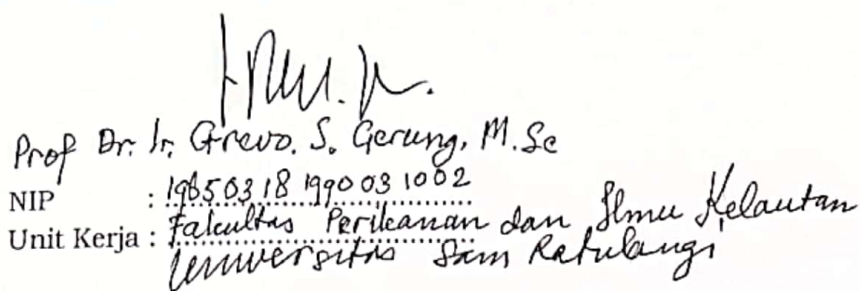 Prof Dr. Ir. Grevo. S. Gerung, M. Sc
NIP : 19650318 199003 1002
Unit Kerja : Fakultas Perikanan dan Ilmu Kelautan
Universitas Sam Ratulangi